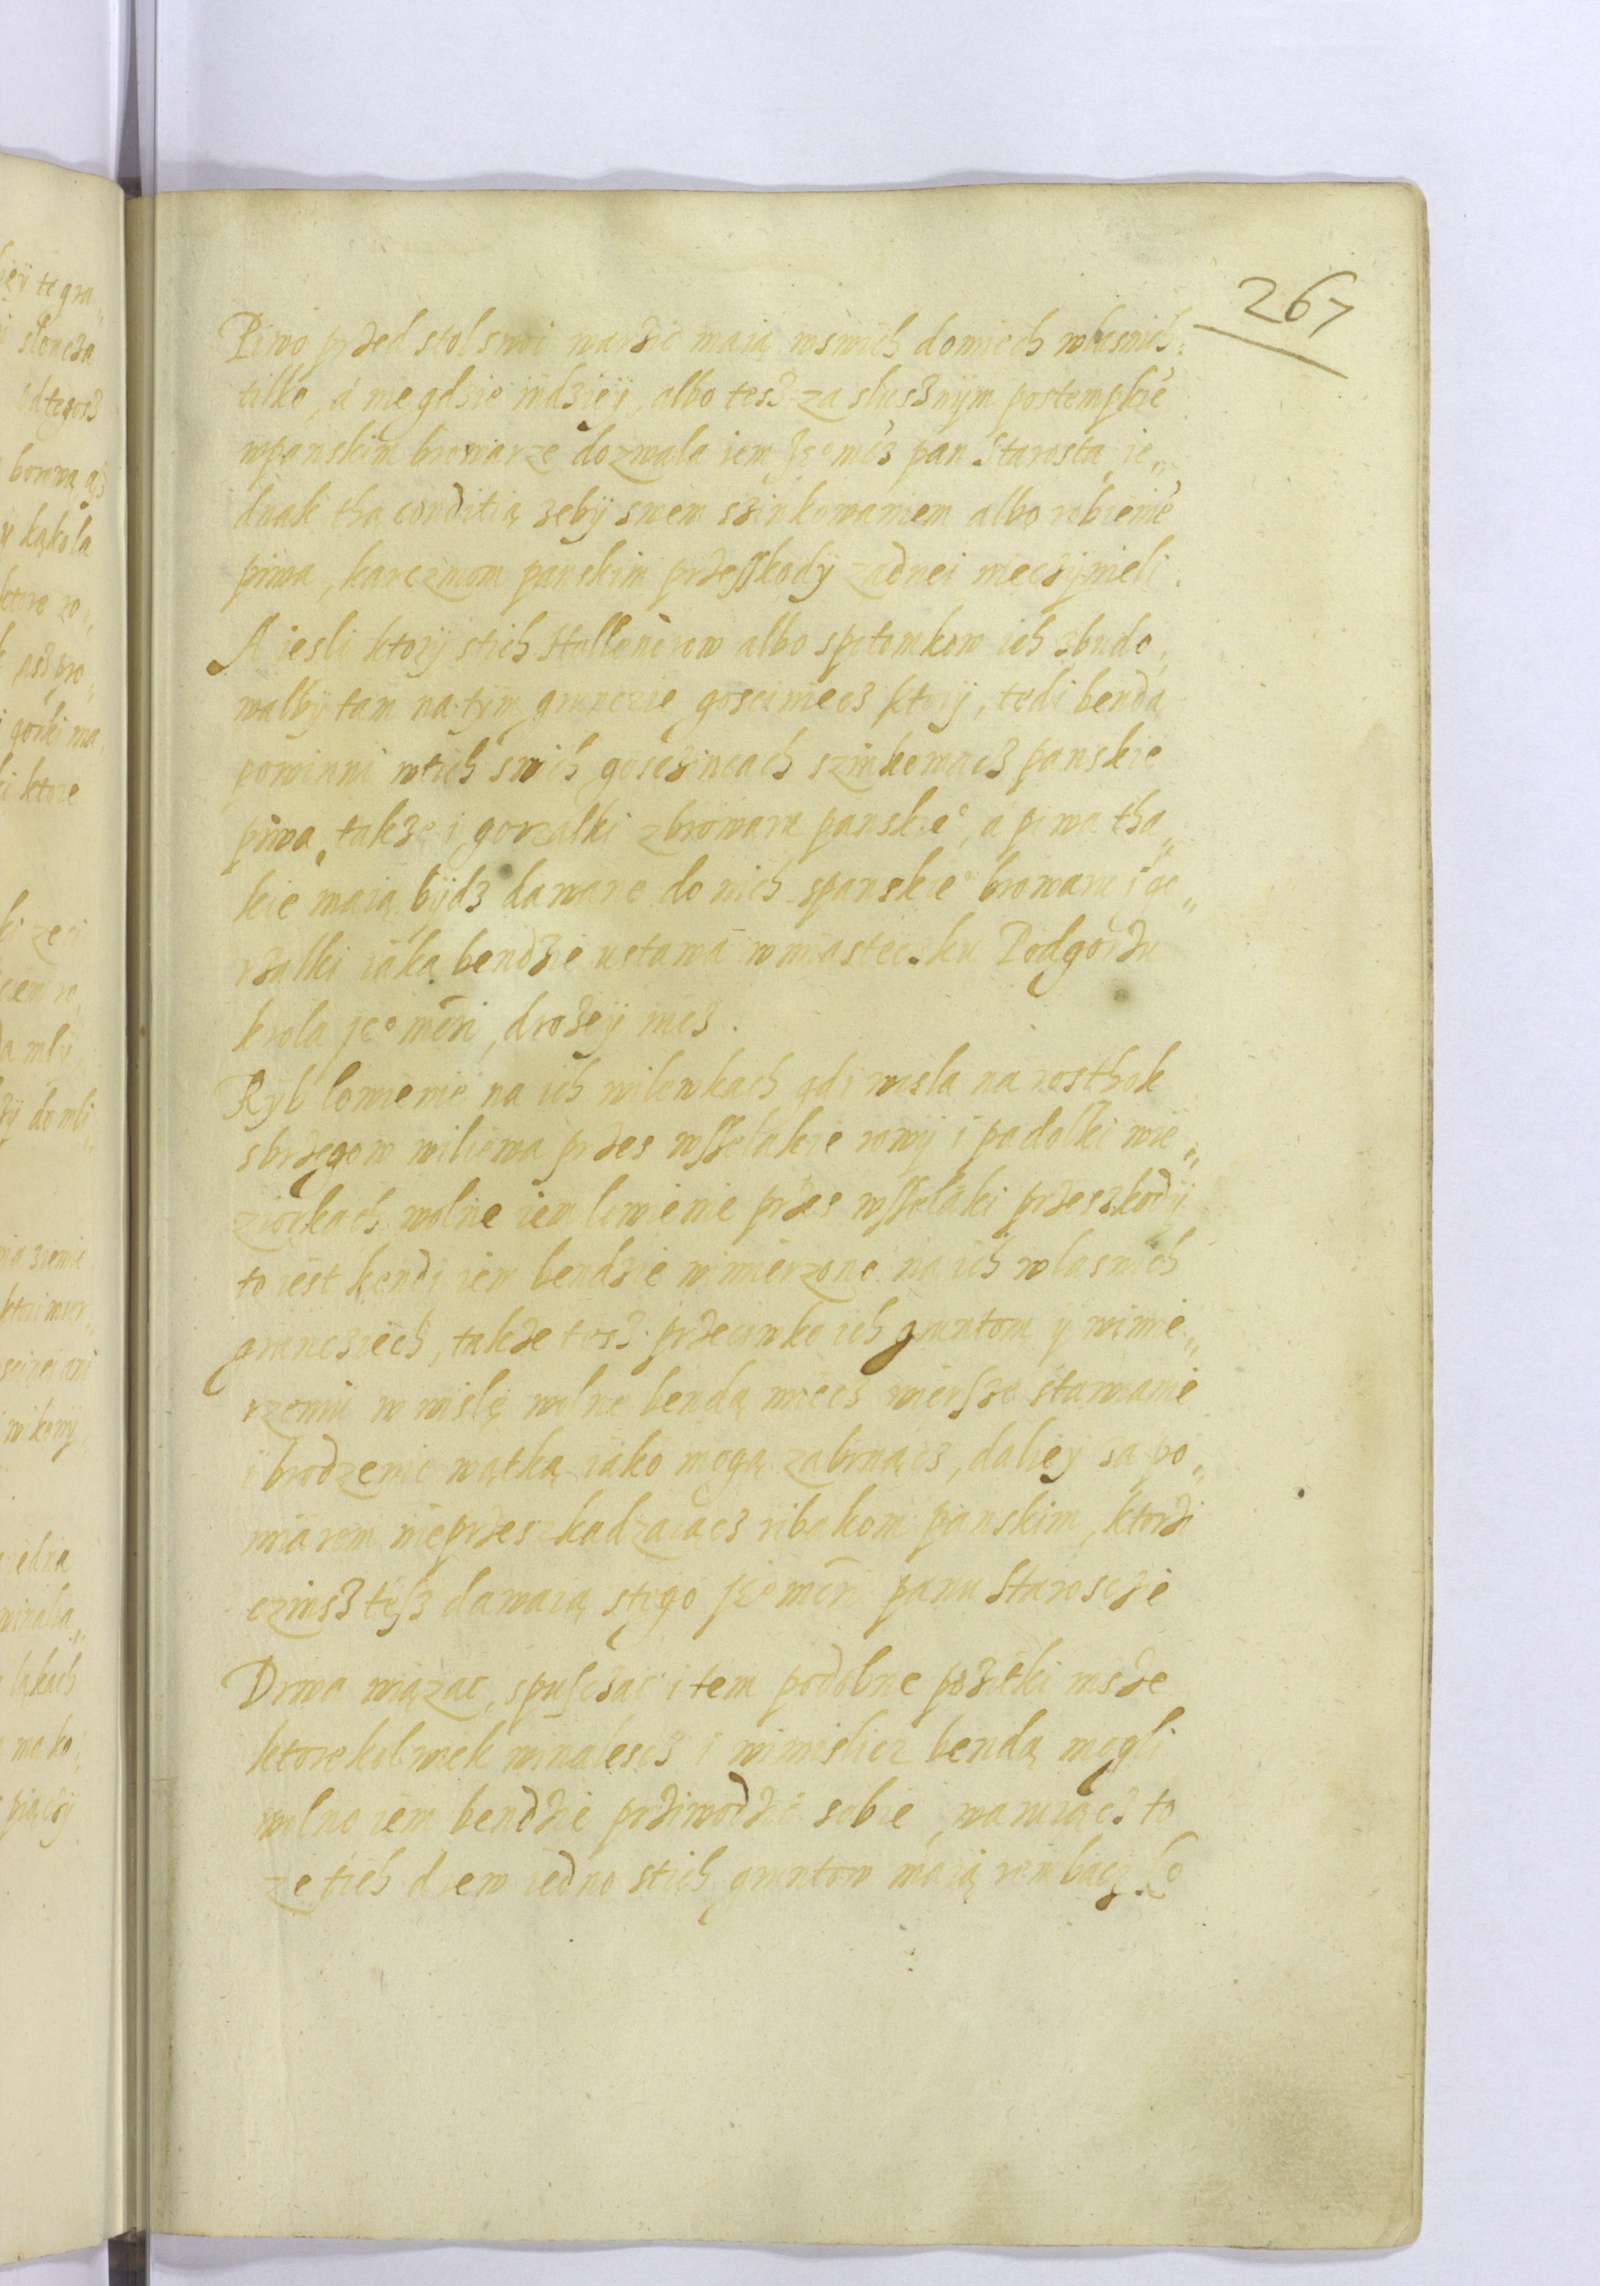 267
Piwo przed stol swoi warzic maią wswich domiech wlasnich
tilko, a niegdzie indzieÿ, albo tesz za slusznÿm postempkiē
wpanskim browarze dozwala iem Jeo mcz pan Starosta ie„
dnak tha conditią zebÿ swem szinkowaniem albo robieniē
piwa, karczmom panskim przesskodÿ zadnei nieczÿnieli.
A iesli ktorÿ stich Hollenðrow albo spotomkow ich zbudo„
walbÿ tam na tÿm gruncie gosciniecz ktorÿ, tedi bendą
powinni wtich swich gosczincach szinkowacz panskie
piwa, takze i gorzalki zbrowaru panskieo, a piwa tha„
kie maią bÿdz dawane do nich spanskieo browaru i go„
rzalki iaka bendzie ustawa wmiasteczku Podgorzu
krola Jeo mczi, drozeÿ niez.
Rÿb lowienie na ich wilewkach gdi wisla na rosthok
sbrzegow wiliewa przes wsselakie rowÿ i padolki wie„
ziorkach wolne iem lowienie przes wsselaki przeszkodÿ
to iest kendi iem bendzie wimierzono na ich wlasnich
grunciech, takze tesz przeciwko ich gruntom ÿ wimie„
rzeniu w wislę wolne bendą miecz wiersze stawianie
i brodzenie wątką iako mogą zabrnącz, daliey sa po„
miarem nieprzeszkadzaiącz ribakom panskim, ktorzi
czinsz tesz dawaią stego Jeo mczi panu Staroscie
Drwa wiązac, spusczac i tem podobne pozitki insze
ktorekolwiek winalescz i wimislicz bendą mogli
wolno iem bendzie prziwodzic sobie, waruiącz to
ze tich drew iedno stich gruntow maią rombacz